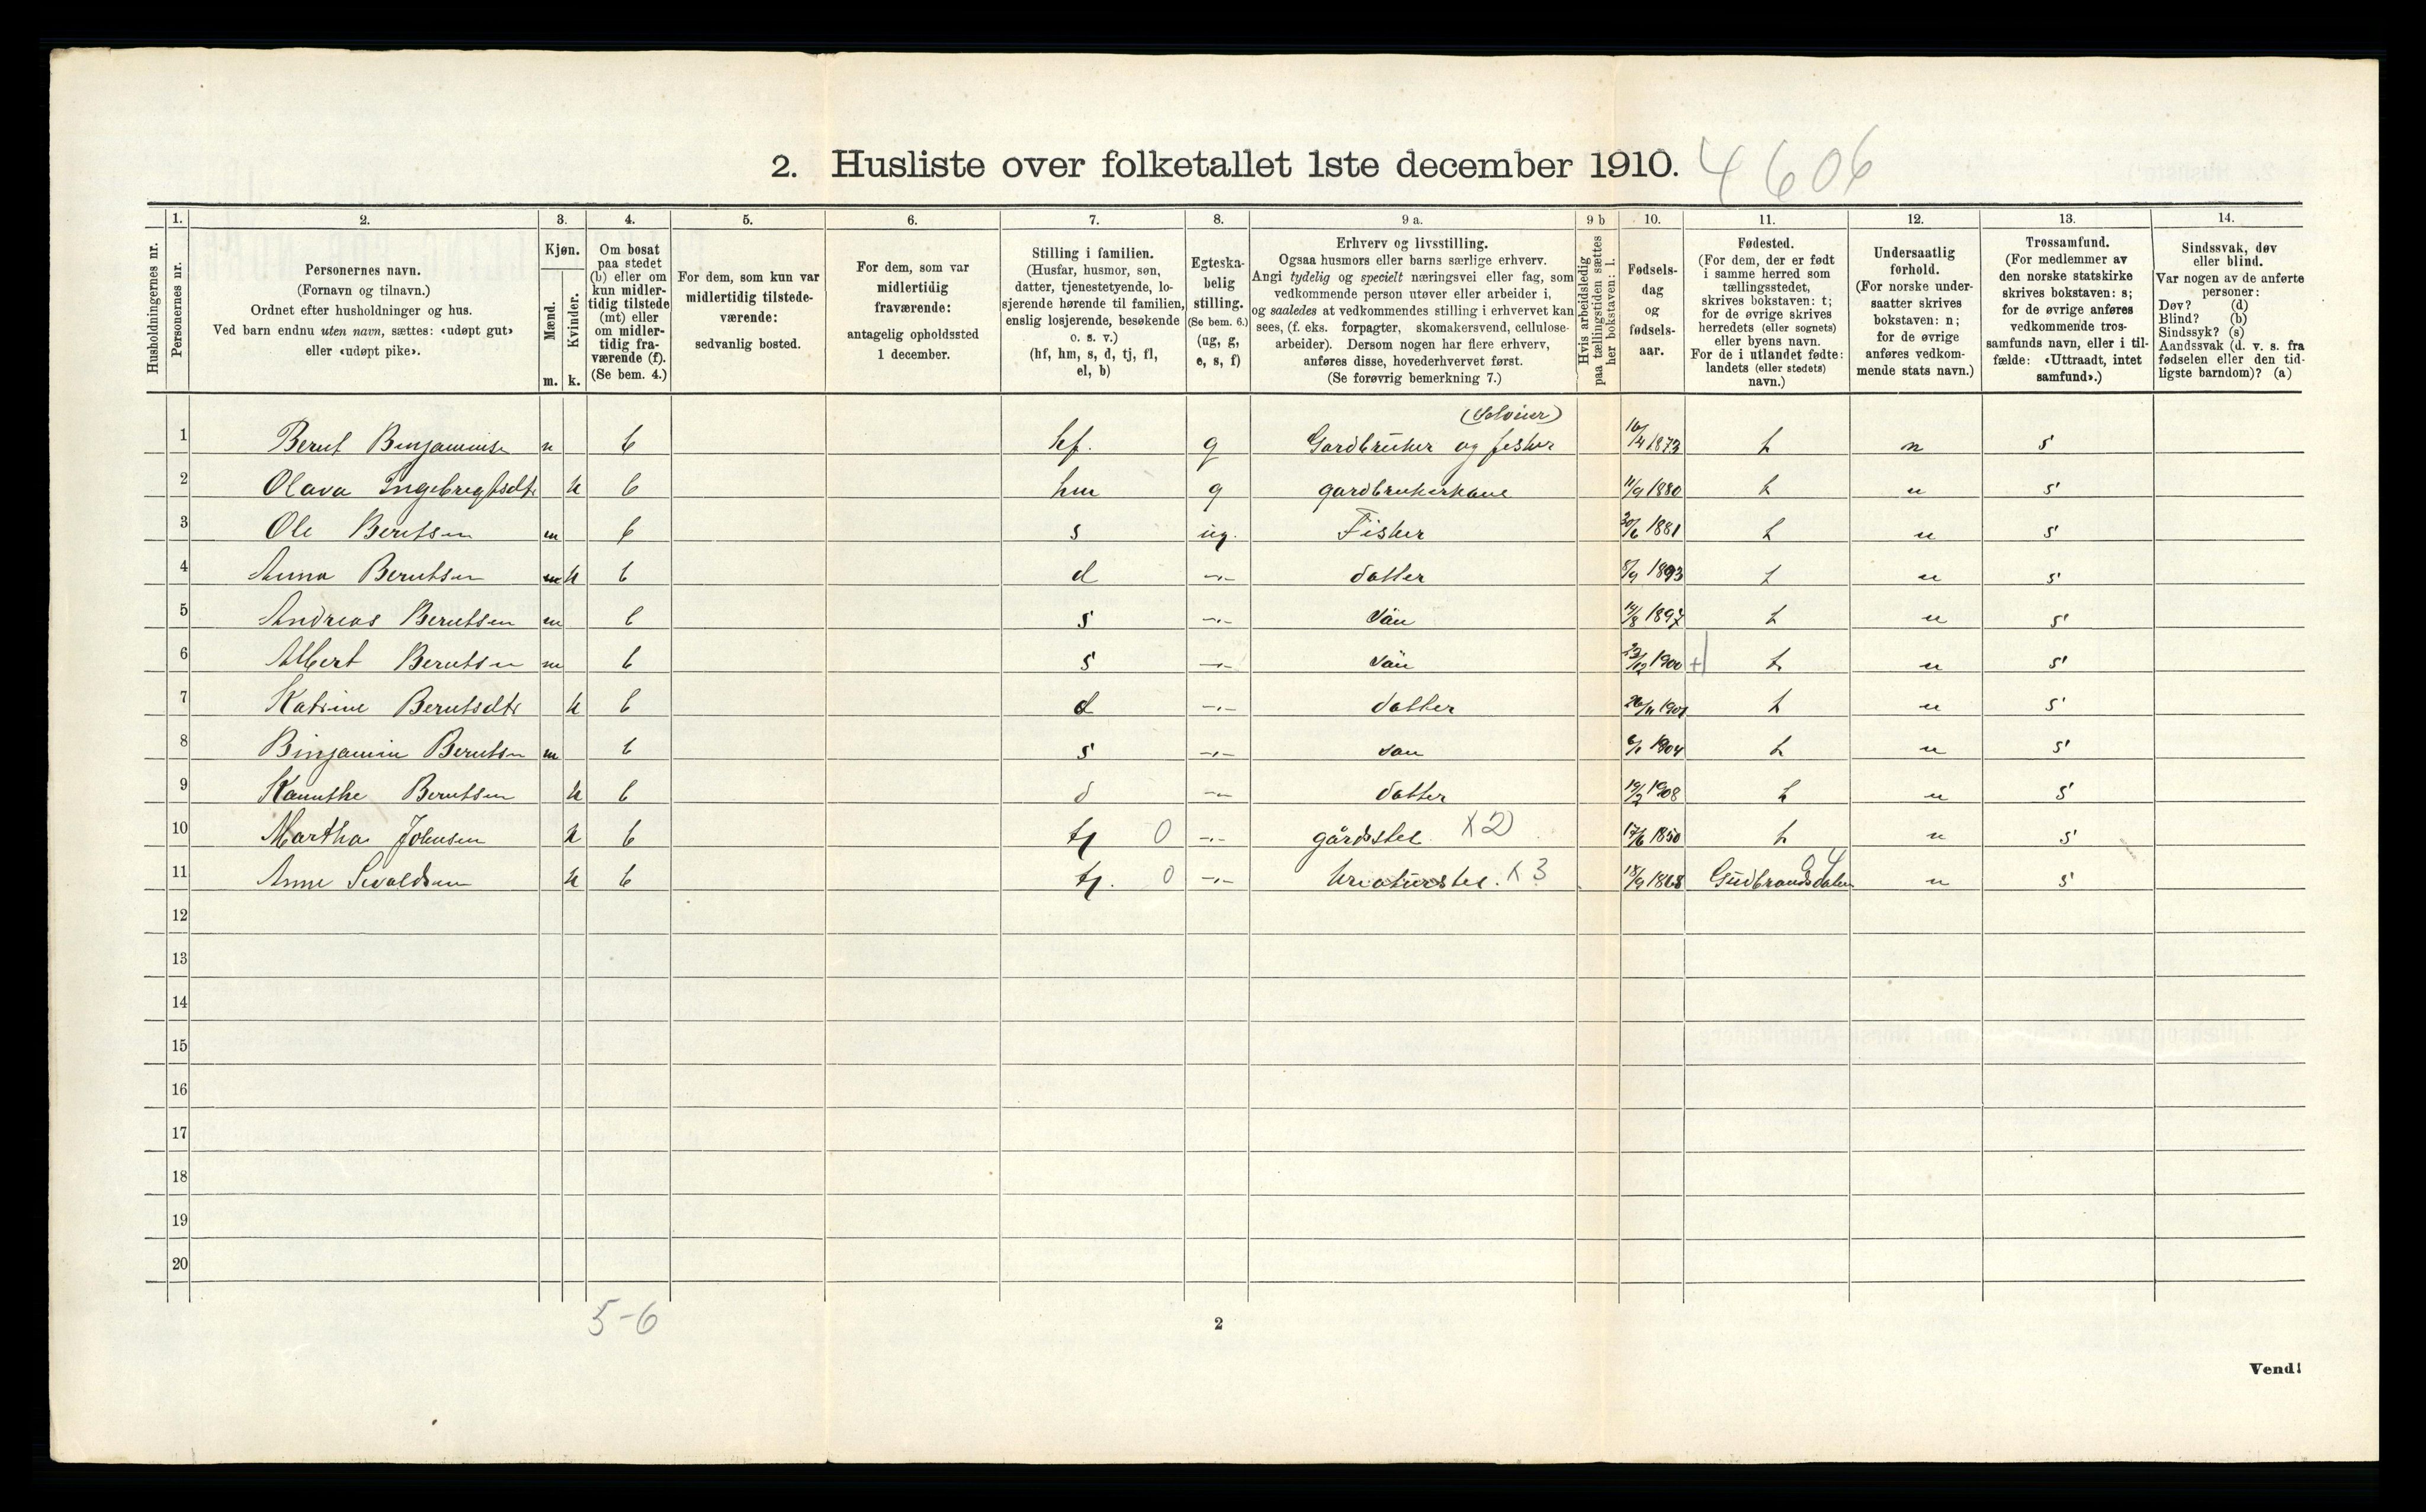 2. Husliste over folketallet 1ste december 1910. 4606
Husholdningernes nr.
1. Personernes nr.
2. Personernes navn.
(Fornavn og tilnavn.)
Ordnet efter husholdninger og hus.
Ved barn endnu uten navn, sættes: «udøpt gut»
eller «udøpt pike».
3. Kjøn.
Mænd. Kvinder.
m. k.
4. Om bosat
paa stedet
(b) eller om
kun midler-
tidig tilstede
(mt) eller
om midler-
tidig fra-
værende (f).
(Se bem. 4.)
5. For dem, som kun var
midlertidig tilstede-
værende:
sedvanlig bosted.
6. For dem, som var
midlertidig
fraværende:
antagelig opholdssted
1 december.
7. Stilling i familien.
(Husfar, husmor, søn,
datter, tjenestetyende, lo-
sjerende hørende til familien,
enslig losjerende, besøkende
o. s. v.)
(hf, hm, s, d, tj, fl,
el, b)
8. Egteska-
belig
stilling.
(Se bem. 6.)
(ug, g,
e, s, f)
9 a. Erhverv og livsstilling.
Ogsaa husmors eller barns særlige erhverv.
Angi tydelig og specielt næringsvei eller fag, som
vedkommende person utøver eller arbeider i,
og saaledes at vedkommendes stilling i erhvervet kan
sees, (f. eks. forpagter, skomakersvend, cellulose-
arbeider). Dersom nogen har flere erhverv,
anføres disse, hovederhvervet først.
(Se forøvrig bemerkning 7.)
9 b Hvis arbeidsledig
paa tællingstiden sættes
her bokstaven: l.
10. Fødsels-
dag
og
fødsels-
aar.
11. Fødested.
(For dem, der er født
i samme herred som
tællingsstedet,
skrives bokstaven: t;
for de øvrige skrives
herredets (eller sognets)
eller byens navn.
For de i utlandet fødte:
landets (eller stedets)
navn.)
12. Undersaatlig
forhold.
(For norske under-
saatter skrives
bokstaven: n;
for de øvrige
anføres vedkom-
mende stats navn.)
13. Trossamfund.
(For medlemmer av
den norske statskirke
skrives bokstaven: s;
for de øvrige anføres
vedkommende tros-
samfunds navn, eller i til-
fælde: «Uttraadt, intet
samfund».)
14. Sindssvak, døv
eller blind.
Var nogen av de anførte
personer:
Døv? (d)
Blind? (b)
Sindssyk? (s)
Aandssvak (d. v. s. fra
fødselen eller den tid-
ligste barndom)? (a)
(Selveier)
1 Bernt Binjaminse m b hf. g Gardbruker og fisker 1873 t n s
2 Olava Ingebregtsdtr k b hm g gardbrukerkone 11/9 1880 t n s
3 Ole Berntsen m b s ug. Fisker 30/6 1881 t n s
4 Anna Berntsen k b d -"- datter 8/9 1893 t n s
5 Andreas Berntsen m b s -"- sön 14/8 1897 t n s
6 Albert Berntsen m b s -"- sön 23/12 1900 + t n s
7 Katrine Berntsdtr k b d -"- datter t n s
8 Binjamin Berntsen m b s -"- son 1904 t n s
9 Kanutke Berntsen k b d -"- datter 19/2 1908 t n s
10 Martha Johnsen k b tj 0 -"- gårdsstel X2) 17/6 1850 t n s
11 Anne Sivaldsen k b tj. 0 -"- kreaturstel. X3 18/9 1868 Gudbrandsdalen n s
12
13
14
15
16
17
18
19
20
5-6
2
Vend!